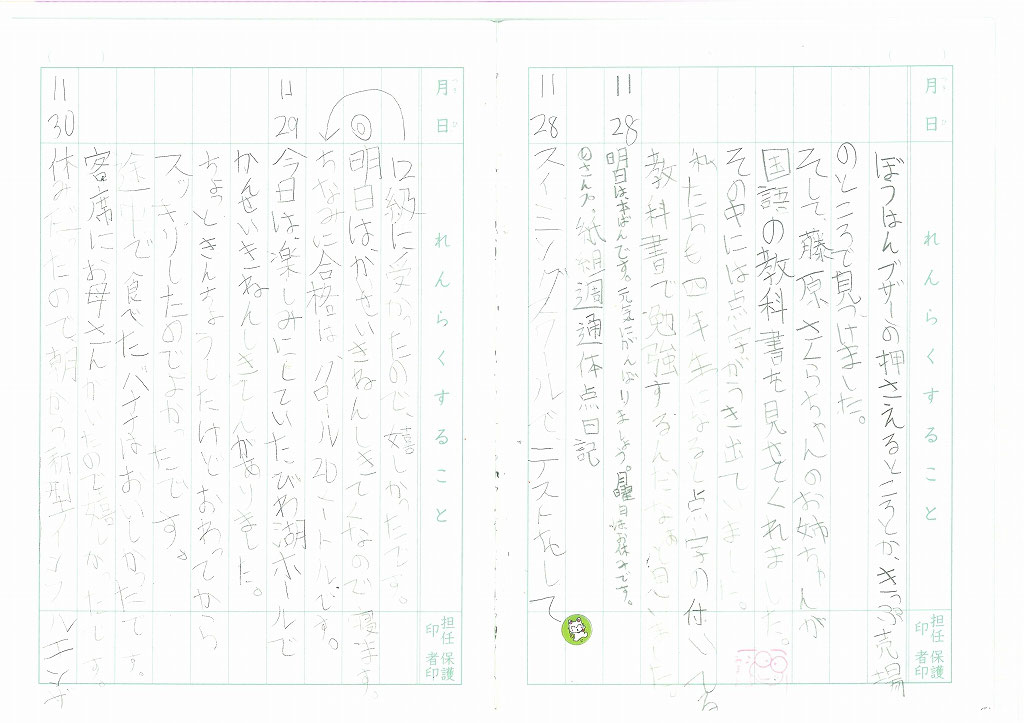 月日
れんらくすること
担任印
保護者印
ぼうはんブザーの押さえるところとか、きっぷ売場
のところで見つけました。
そして、藤原さくらちゃんのお姉ちゃんが
国語の教科書を見さとくれました。
その中には点字がうき出ていました。
私たちも四年生になると点字の付いてる
教科書で勉強するんだなぁと思いました。
11 28
明日は本ばんです。元気にがんばりましょう。月曜日はお休みです。
紙組週通体点日記
11 28 スイミングスクールでテストをして
月日
れんらくすること
担任印
保護者印
12級に受かったので、嬉しかったです。
◎明日は、かさいきねんしきてくなので寝ます。
ちなみに合格は、クロール20メートルです。
11 29 今日は、楽しみにしていたびわ湖ホールで
かんせいきねんしきてんがありました。
ちょっときんちょうしたけどおわってから
スッキリしたのでよかったです。
途中で食べたパイはおいしかったです。
客席にお母さんがいたので嬉しかったです。
11 30 休みだったので、朝から新型インフルエンザ